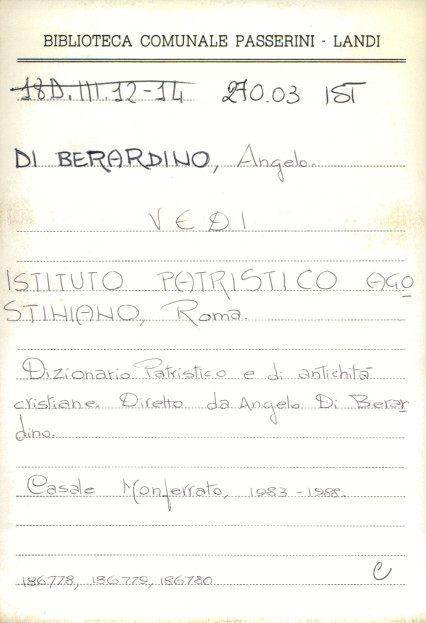 BIBLIOTECA COMUNALE PASSERINI - LANDI
18D.III.12-14 270.03 IST
DI BERARDINO, Angelo.
VEDI
ISTITUTO PATRISTICO AGO
STINIANO, Roma.
Dizionario Patristico e di antichità
cristiane. Diretto da Angelo Di Berar
dino.
Casale Monferrato, 1983-1988.
186778, 186779, 186780
C